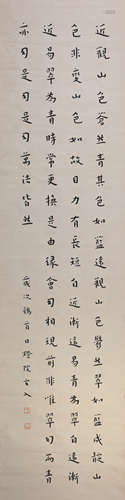 近觀山色蒼然青其色如藍遠觀山色鬱然翠如藍成靛山
色非變山色如故目力有長短自近漸遠易青為翠自遠漸
近易翠為青時常更換是由緣會幻相現前非惟翠幻而青
亦幻是幻是幻萬法皆然
歲次鶉首日燈院玄入